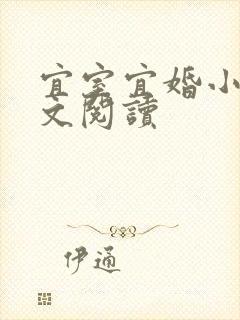 宜室宜婚小
文閱讀
伊通